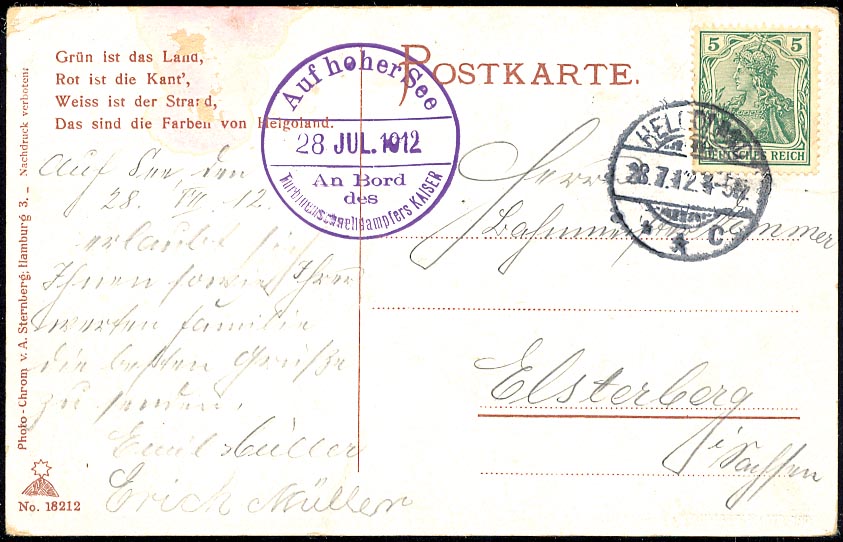 Grün ist das Land,
Rot ist die Kant',
Weiss ist der Strand,
Das sind die Farben von Helgoland.
POSTKARTE.
Auf hoher See
28 JUL. 1912
An Bord
des
Turbinenschnelldampfers KAISER
5 5
DEUTSCHES REICH
HELGOLAND
28.7.12 4-5N
* * C
Auf See, den
28. VII. 12.
erlaube ich
Ihnen sowie Ihrer
werten Familie
die besten Grüße
zu senden.
Emil Müller
Erich Müller
Herrn
Elsterberg
i/Sachsen
Photo-Chrom v. A. Sternberg, Hamburg 3. – Nachdruck verboten.
No. 18212